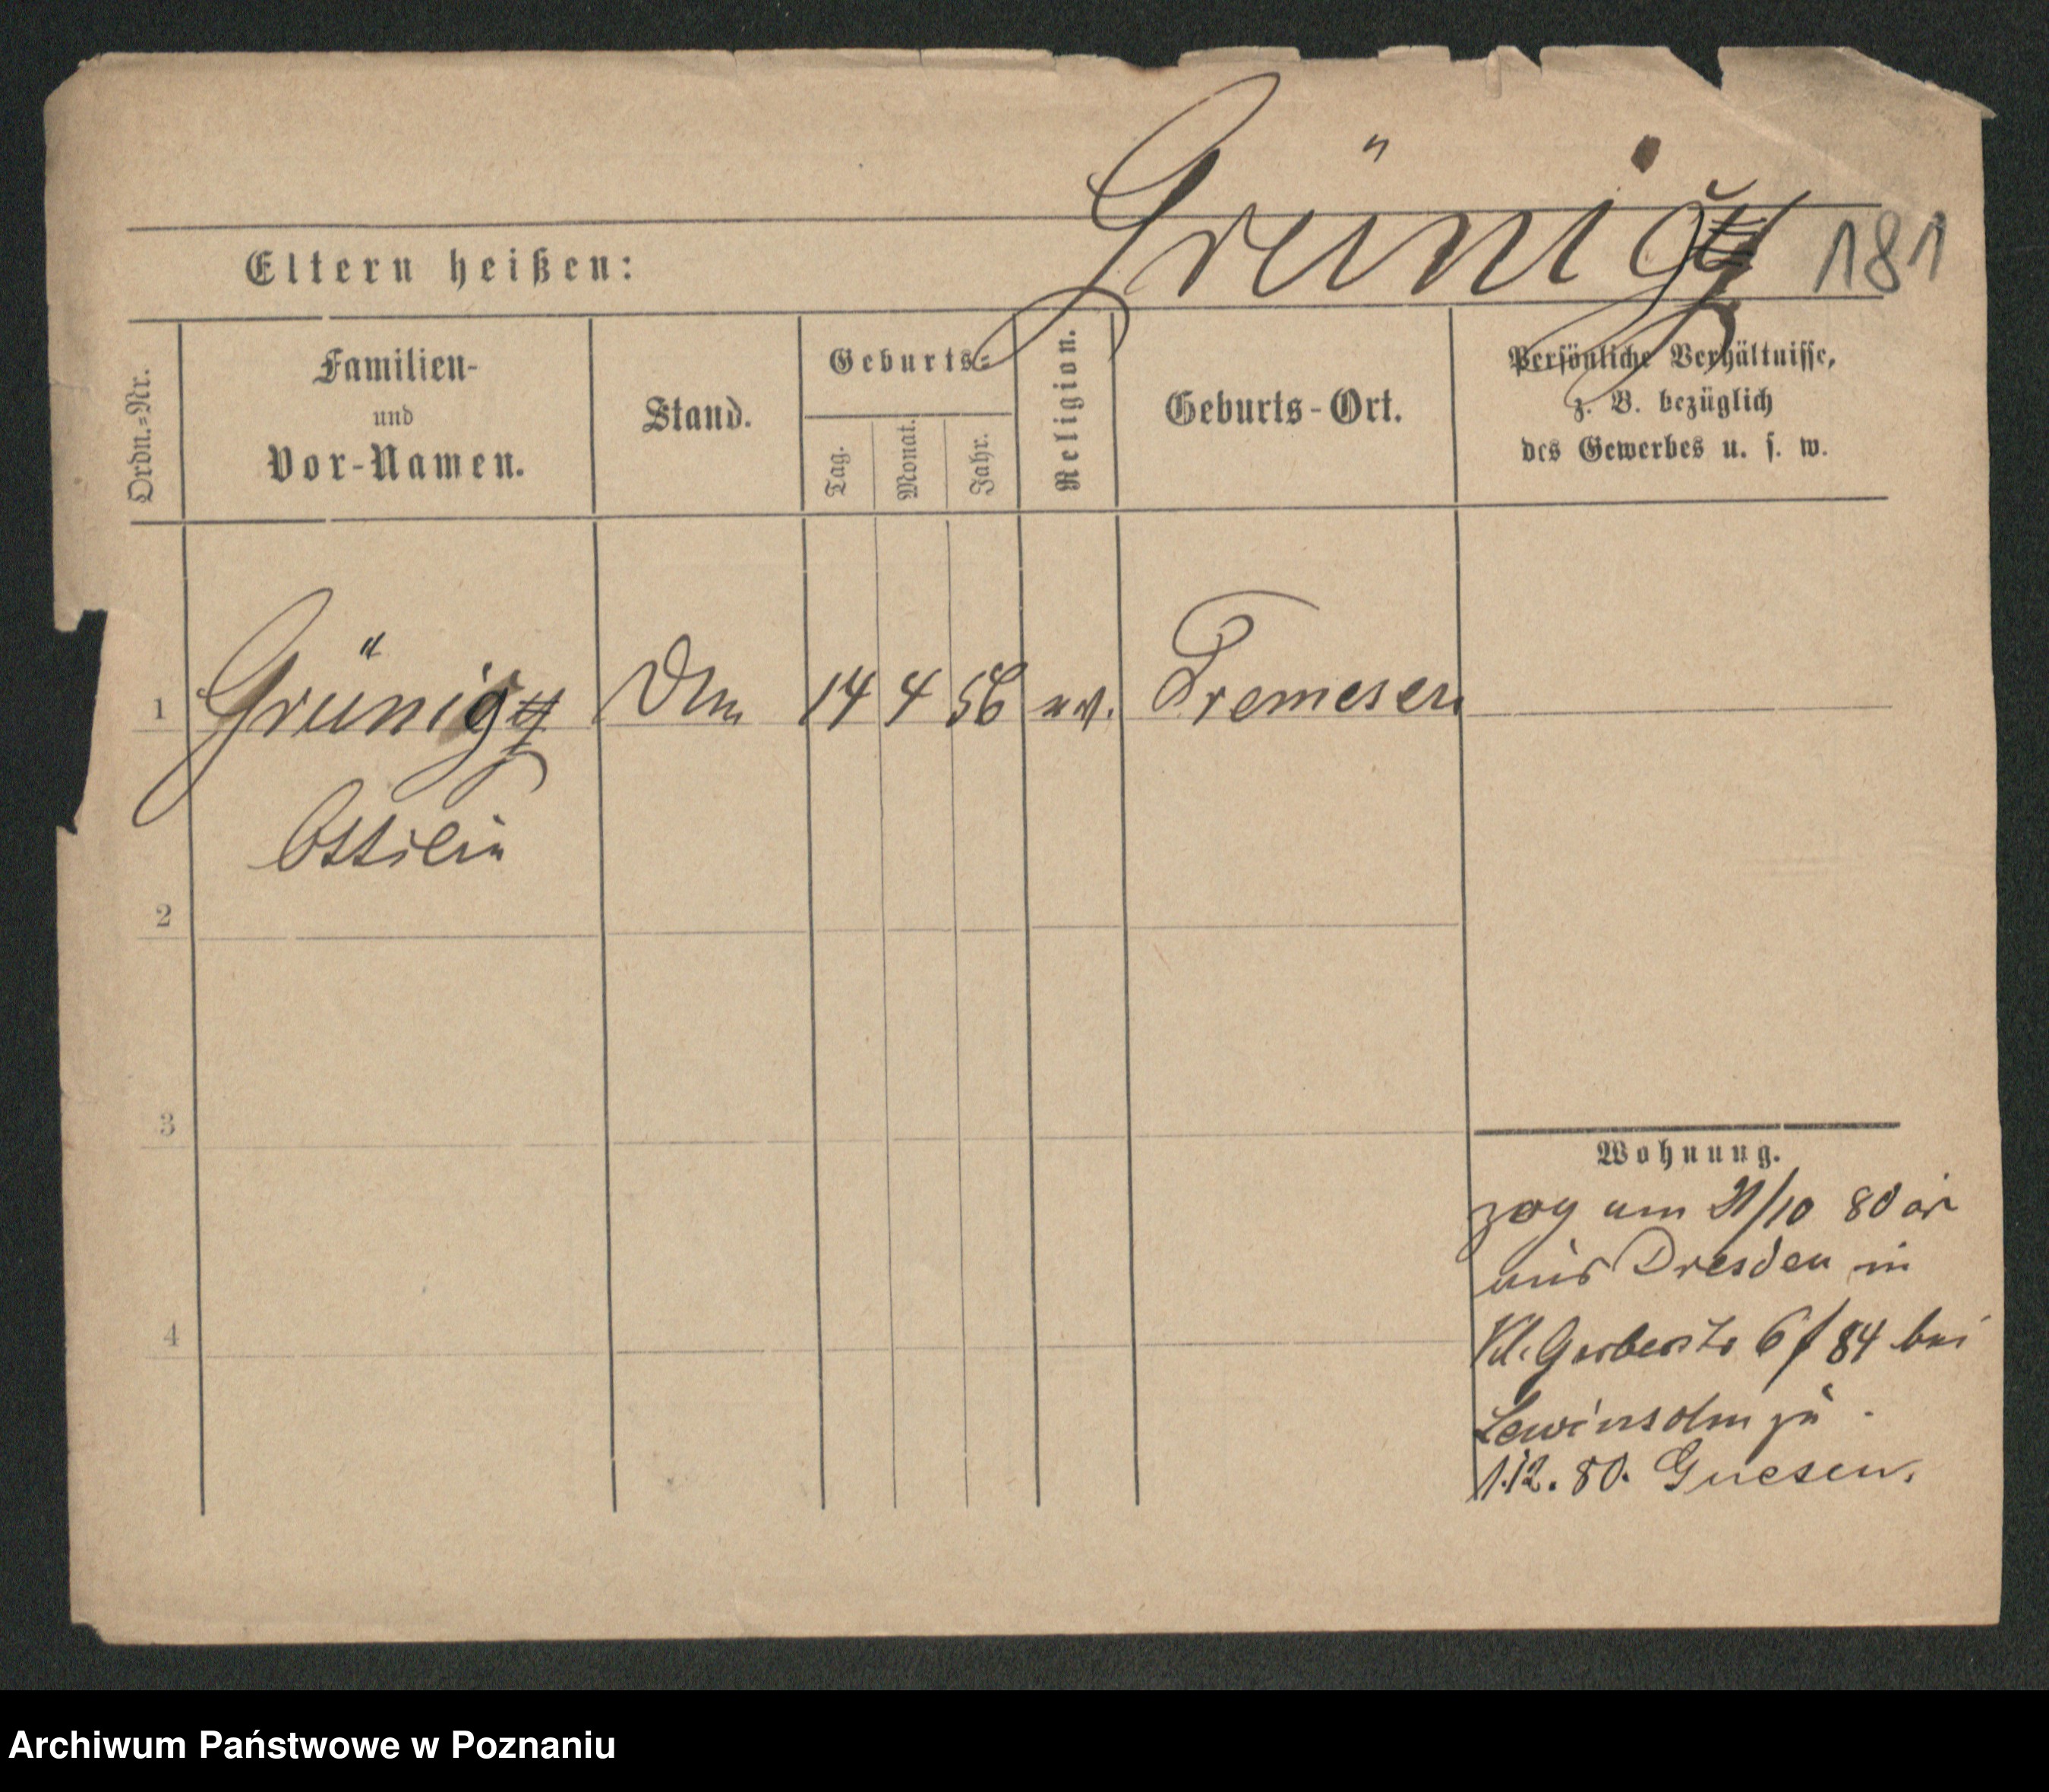 Grünig 181
Eltern heißen:
Ordn.=Nr.
Familien-
und
Vor-Namen.
Stand.
Geburts=
Tag.
Monat.
Jahr.
Religion.
Geburts-Ort.
Persönliche Verhältnisse,
z. B. bezüglich
des Gewerbes u. s. w.
1 Grünig 14 4 56 Tremesen
2
3
4
Wohnung.
zog am 21/10 80
aus Dresden in
Kl. Gerberstr 6 / 84 bei
Lewinsohn zu
1.12.80. Gnesen.
Archiwum Państwowe w Poznaniu